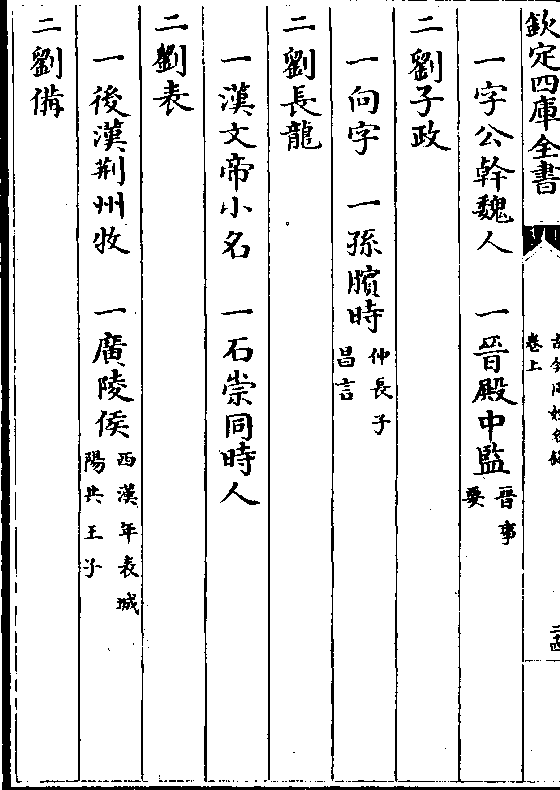 欽定四庫全書
卷上
一字公幹魏人　一晉殿中監晉事要
二劉子政
一向字　一孫臏時仲長子昌言
二劉長龍
一漢文帝小名　一石崇同時人
二劉表
一後漢荆州牧　一廣陵侯西漢年表城陽共王子
二劉備